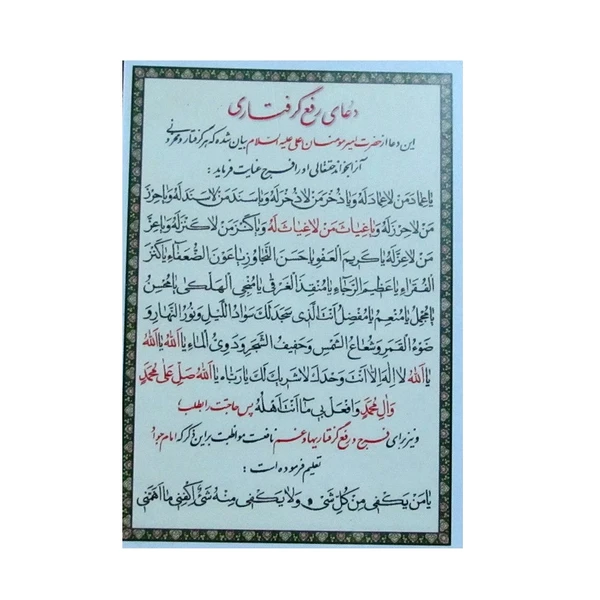 دعای رفع گرفتاری
این دعا از حضرت امیر مومنان علی علیه السلام بیان شده که هر گرفتار و محزونی
آنرا بخواند حقتعالی او را فرج عنایت فرماید :
یا عِمادَ مَن لا عِمادَ لَهُ وَیا ذُخرَ مَن لا ذُخرَ لَهُ وَیا سَنَدَ مَن لا سَنَدَ لَهُ وَیا حِرزَ
مَن لا حِرزَ لَهُ وَیا غِیاثَ مَن لا غِیاثَ لَهُ وَیا کَنزَ مَن لا کَنزَ لَهُ وَیا عِزَّ
مَن لا عِزَّ لَهُ یا کَریمَ العَفوِ یا حَسَنَ التَّجاوُزِ یا عَونَ الضُّعَفاءِ یا کَنزَ
الفُقَراءِ یا عَظیمَ الرَّجاءِ یا مُنقِذَ الغَرقی یا مُنجِیَ الهَلکی یا مُحسِنُ
یا مُجمِلُ یا مُنعِمُ یا مُفضِلُ اَنتَ الَّذی سَجَدَ لَکَ سَوادُ اللَّیلِ وَنورُ النَّهارِ وَ
ضَوءُ القَمَرِ وَشُعاعُ الشَّمسِ وَحَفیفُ الشَّجَرِ وَدَوِیُّ الماءِ یا اَللهُ یا اَللهُ
یا اَللهُ لا اِلهَ اِلّا اَنتَ وَحدَکَ لا شَریکَ لَکَ یا رَبّاهُ یا اَللهُ صَلِّ عَلی مُحَمَّدٍ
وَآلِ مُحَمَّدٍ وَافعَل بی ما اَنتَ اَهلُهُ پس حاجت را بطلب
و نیز برای فرج و رفع گرفتاریها و غم نافعست مواظبت بر این ذکر که امام جواد
تعلیم فرموده است :
یا مَن یَکفی مِن کُلِّ شَیءٍ وَلا یَکفی مِنهُ شَیءٌ اِکفِنی ما اَهَمَّنی